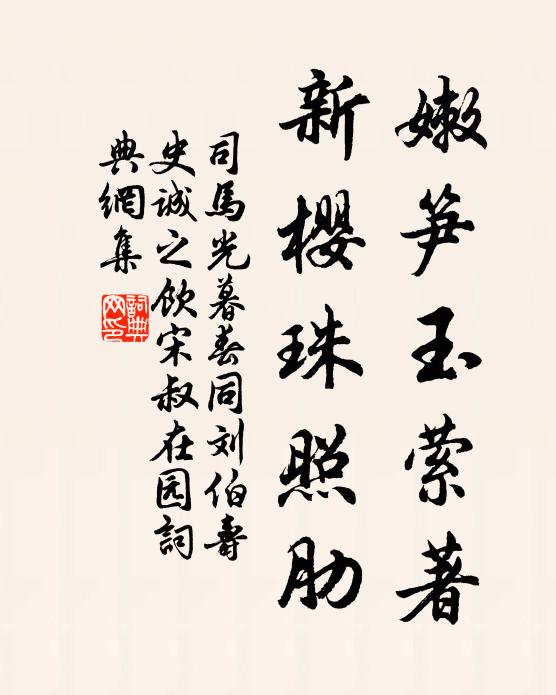 嫩笋玉萦著
新樱珠照肋
司馬光暮春同刘伯壽
史诚之飲宋叔在园詞
典網集
詞典网印